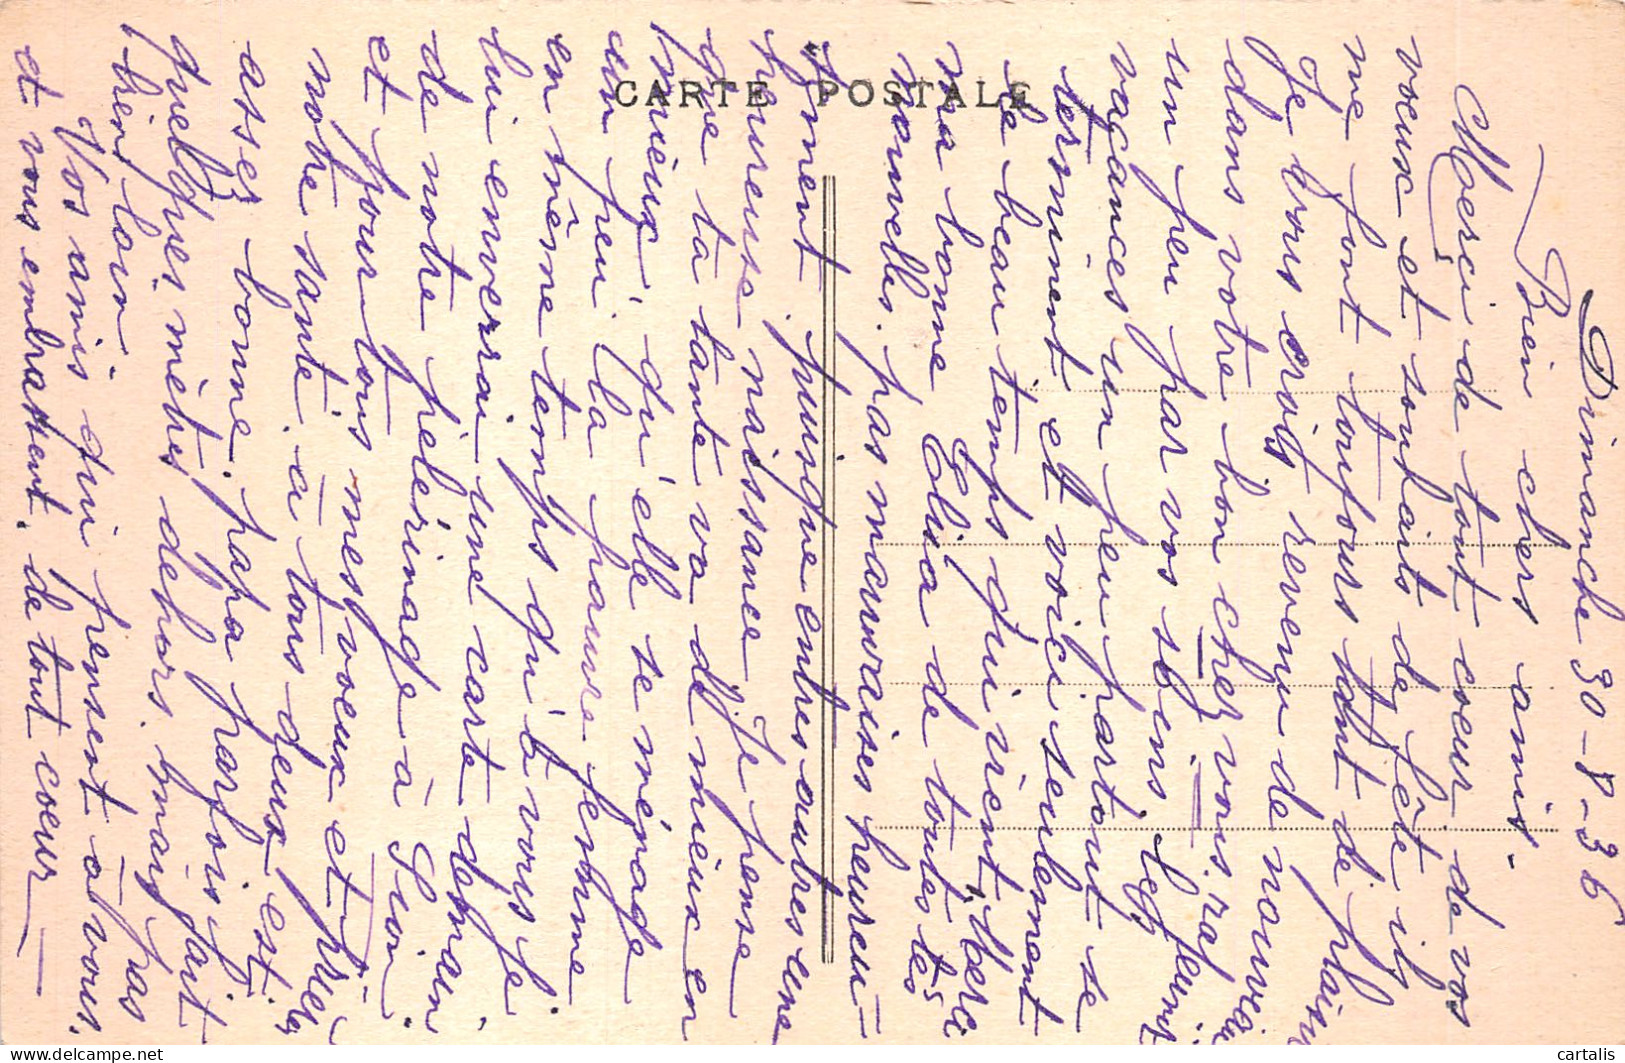 CARTE POSTALE
Dimanche 30-8-36
Bien chers amis.
Merci de tout coeur de vos
voeux et souhaits de fête ils
me font toujours tant de plaisir
Je vous crois revenu de nouveau
dans votre bon chez vous. rajeunit
un peu par vos soins. les
vacances un peu partout se
terminent et voici seulement
le beau temps qui vient. Merci
ma bonne Elisa de toutes tes
nouvelles. pas mauvaises heureu-
sement puisque entres autres une
heureuse naissance. Je pense
que ta tante va de mieux en
mieux, qu'elle se ménage
un peu la pauvre femme
en même temps qu'à vous je
lui enverrai une carte demain
de notre pèlerinage à Sion
et pour tous mes voeux et prières
notre santé. à tous deux est
assez bonne. papa parfois fait
quelques mètres dehors. mais pas
bien loin.
Vos amis qui pensent à vous.
et vous embrassent. de tout coeur
cartalis